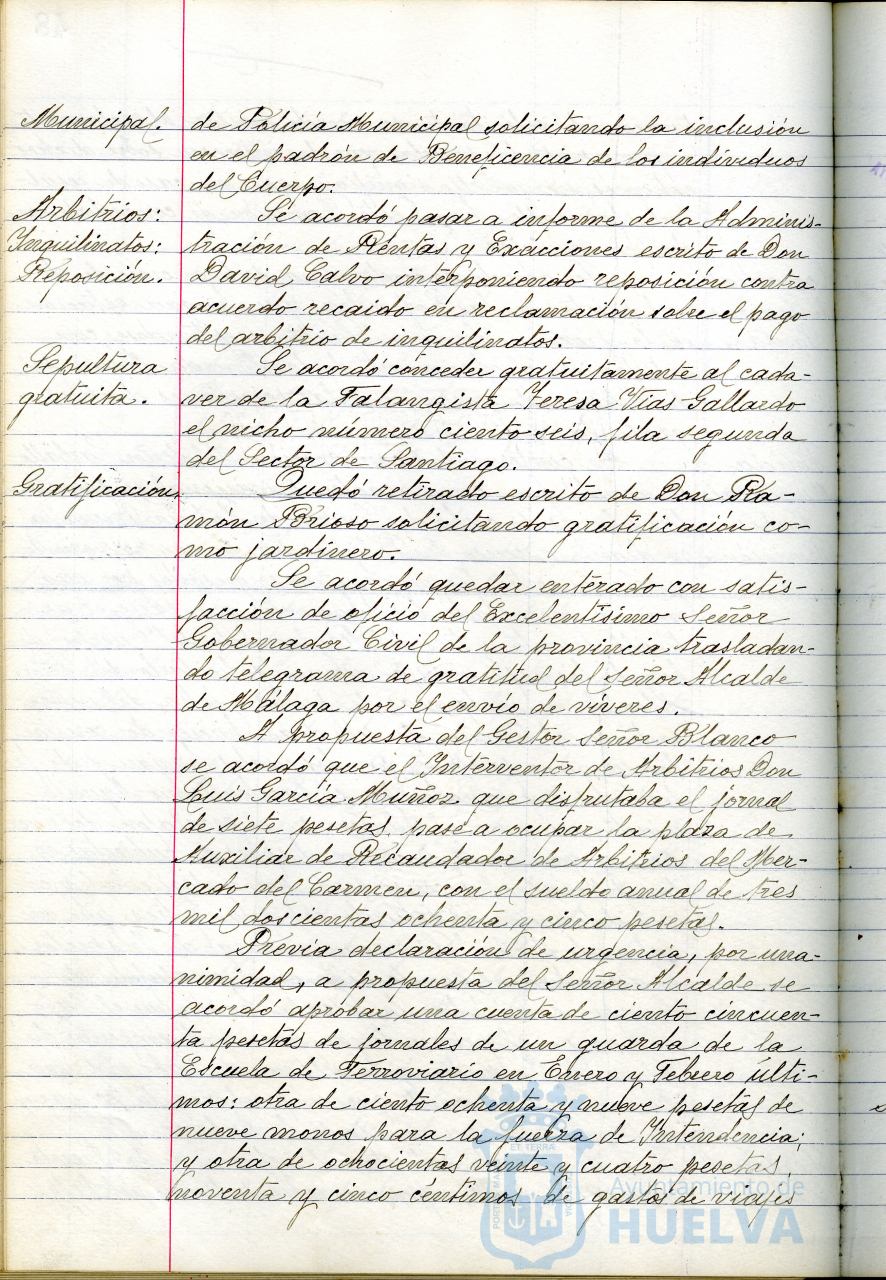 Municipal. de Policía Municipal solicitando la inclusión
en el padrón de Beneficencia de los individuos
del Cuerpo.
Arbitrios: Se acordó pasar a informe de la Adminis-
Inquilinatos: tración de Rentas y Exacciones escrito de Don
Reposición. David Calvo interponiendo reposición contra
acuerdo recaido en reclamación sobre el pago
del arbitrio de inquilinatos.
Sepultura Se acordó conceder gratuitamente al cada-
gratuita. ver de la Falangista Teresa Vias Gallardo
el nicho número ciento seis, fila segunda
del Sector de Santiago.
Gratificación. Quedó retirado escrito de Don Ra-
món Brioso solicitando gratificación co-
mo jardinero.
Se acordó quedar enterado con satis-
facción de oficio del Excelentísimo Señor
Gobernador Civil de la provincia trasladan-
do telegrama de gratitud del Señor Alcalde
de Málaga por el envío de víveres.
A propuesta del Gestor Señor Blanco
se acordó que el Interventor de Arbitrios Don
Luis García Muñoz que disfrutaba el jornal
de siete pesetas, pase a ocupar la plaza de
Auxiliar de Recaudador de Arbitrios del Mer-
cado del Carmen, con el sueldo anual de tres
mil doscientas ochenta y cinco pesetas.
Previa declaración de urgencia, por una-
nimidad, a propuesta del Señor Alcalde se
acordó aprobar una cuenta de ciento cincuen-
ta pesetas de jornales de un guarda de la
Escuela de Ferroviario en Enero y Febrero últi-
mos: otra de ciento ochenta y nueve pesetas de
nueve monos para la fuerza de Intendencia;
y otra de ochocientas veinte y cuatro pesetas,
noventa y cinco céntimos de gastos de viajes
Ayuntamiento de
HUELVA